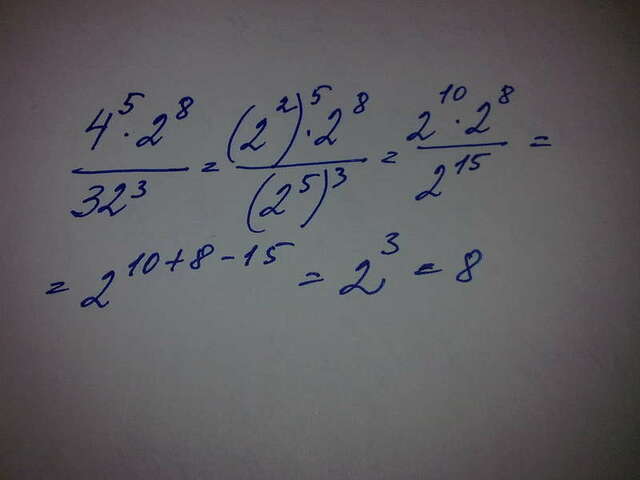 4⁵·2⁸/32³ = (2²)⁵·2⁸/(2⁵)³ = 2¹⁰·2⁸/2¹⁵ =
= 2¹⁰⁺⁸⁻¹⁵ = 2³ = 8